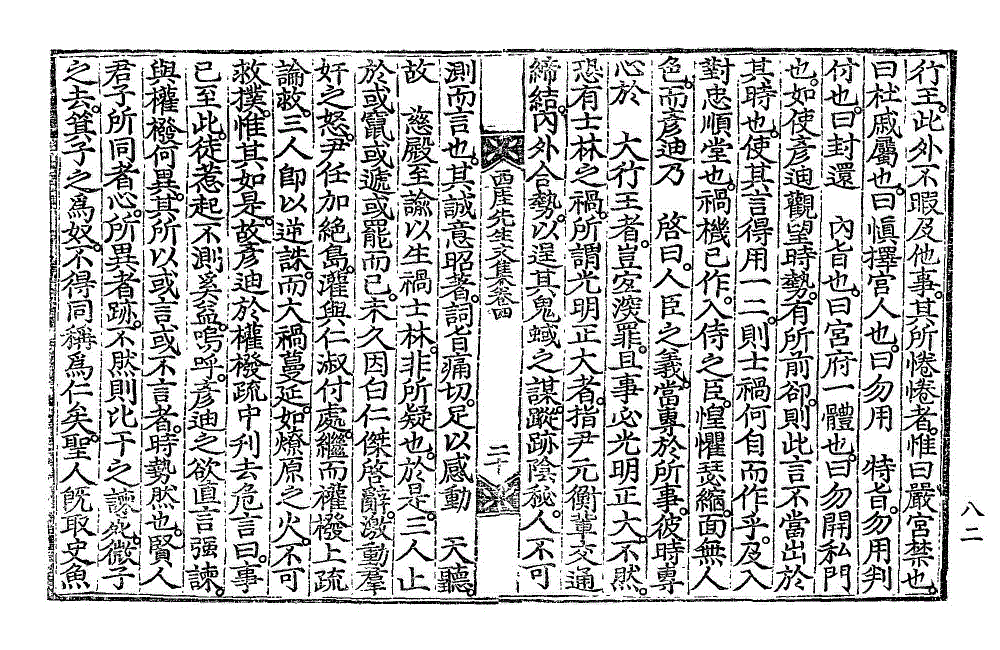 行王。此外不暇及他事。其所惓惓者。惟曰嚴宮禁也。
曰杜戚屬也。曰愼擇官人也。曰勿用 特旨。勿用判
付也。曰封還 內旨也。曰宮府一體也。曰勿開私門
也。如使彥迪觀望時勢。有所前卻。則此言不當出於
其時也。使其言得用一二。則士禍何自而作乎。及入
對忠順堂也。禍機已作。入侍之臣。惶懼瑟縮。面無人
色。而彥迪乃 啓曰。人臣之義。當專於所事。彼時專
心於 大行王者。豈宜深罪。且事必光明正大。不然。
恐有士林之禍。所謂光明正大者。指尹元衡輩交通
締結。內外合勢。以逞其鬼蜮之謀。蹤跡陰秘。人不可
西厓先生文集卷四
二十
測而言也。其誠意昭著。詞旨痛切。足以感動 天聽。
故 慈殿至諭以生禍士林。非所疑也。於是。三人止
於或竄或遞或罷而已。未久因白仁傑啓辭。激動羣
奸之怒。尹任加絶島。灌與仁淑付處。繼而權橃上疏
論救。三人卽以逆誅。而大禍蔓延。如燎原之火。不可
救撲。惟其如是。故彥迪於權橃疏中刋去危言曰。事
已至此。徒惹起不測。奚益。嗚呼。彥迪之欲直言强諫。
與權橃何異。其所以或言或不言者。時勢然也。賢人
君子所同者心。所異者跡。不然則比干之諫死。微子
之去。箕子之爲奴。不得同稱爲仁矣。聖人旣取史魚
八二